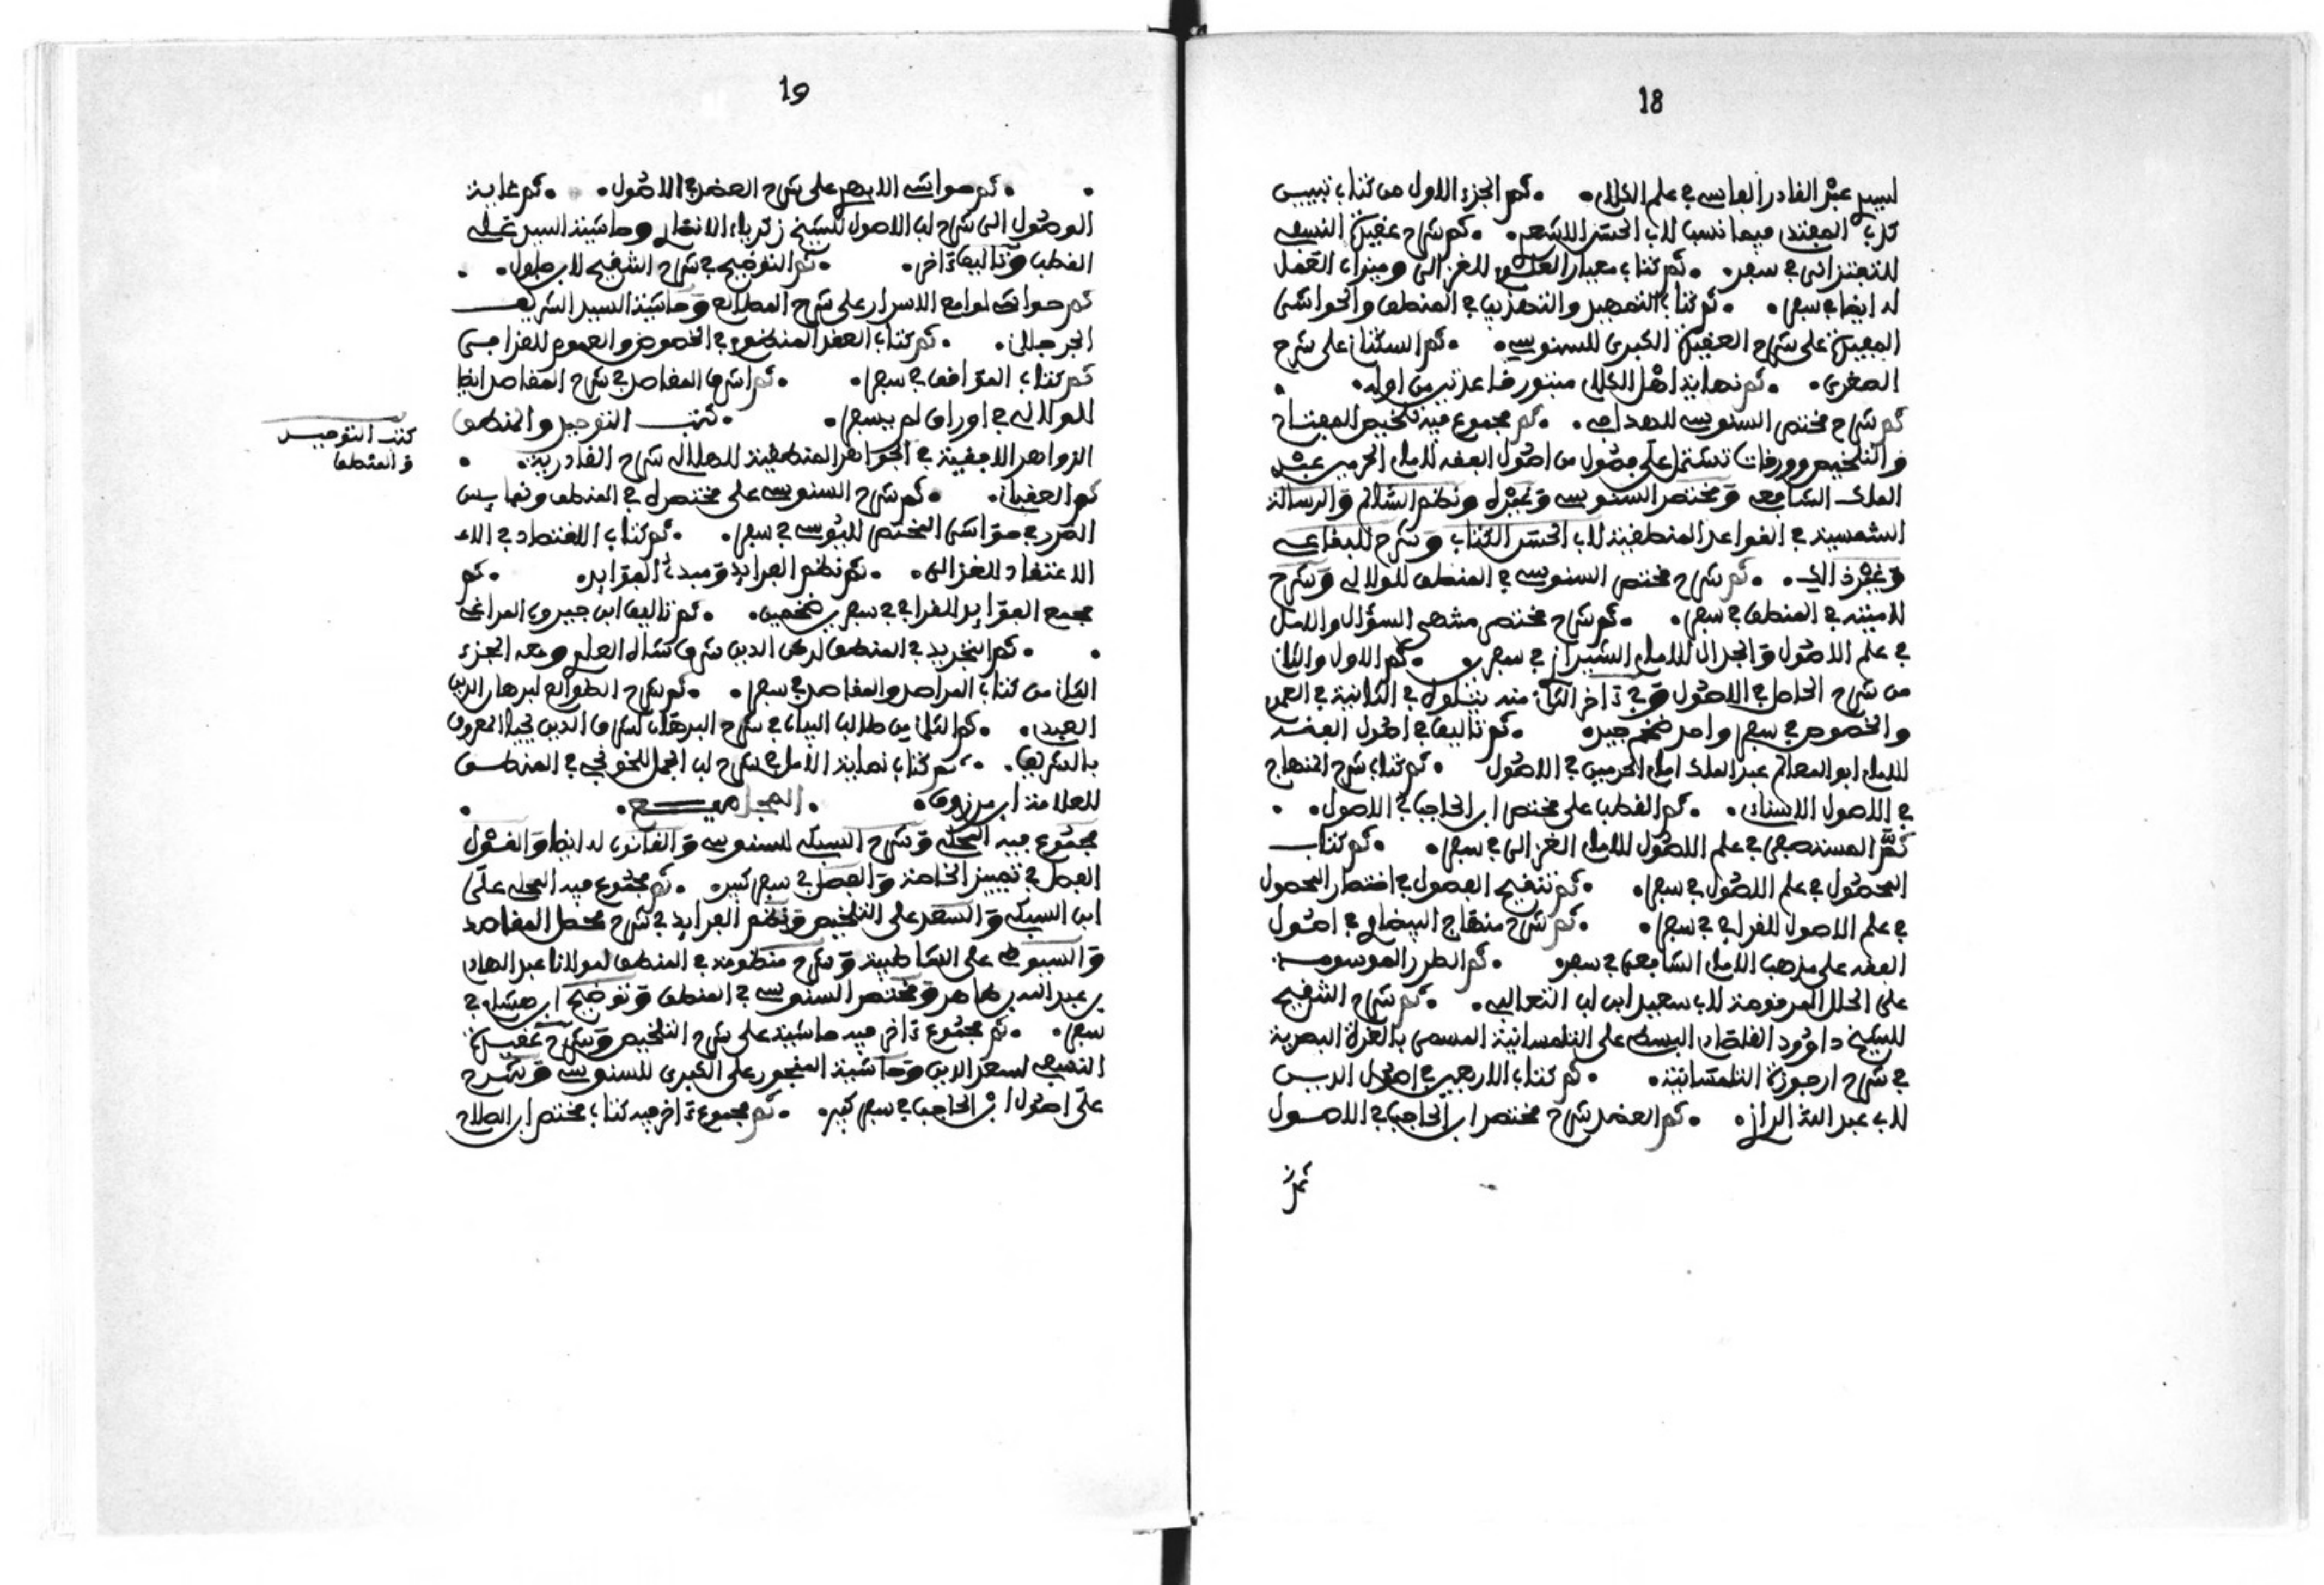 18
لسيد عبد القادر الفاسي في علم الكلام. ثم الجزء الاول من كتاب تبيين
كذب المفتر فيما نسب لابي الحسن الاشعر. ثم شرح عقيدة النسفي
للتفتزاني في سفر. ثم كتاب معيار العلوم للغزالي وميزان العمل
له ايضا في سفر. ثم كتاب التمهيد والتهذيب في المنطق والحواشي
المفيدة على شرح العقيدة الكبرى للسنوسي. ثم السكتاني على شرح
الصغرى. ثم نهاية اهل الكلام مبتور من اوله.
ثم شرح مختصر السنوسي. ثم مجموع فيه تلخيص المفتاح
والتلخيص وورقات تشتمل على فصول من اصول الفقه للامام الحرمين عبد
الملك الشافعي ومختصر السنوسي وغيره ونظم السلم والرسالة
الشمسية في القواعد المنطقية لابي الحسن الكتاب وشرح للبقاعي
وغير ذالك. ثم شرح مختصر السنوسي في المنطق للولالي وشرح
لاميته في المنطق في سفر. ثم شرح مختصر منتهى السؤال والامل
في علم الاصول والجدال للامام الشيراز في سفرين. ثم الاول والثان
من شرح الحاصل في الاصول وفي ءاخر الثان منه يتلوه في الثانية في العموم
والخصوص في سفر واحد ضخم جيد. ثم تاليف في اصول الفقه
للامام ابو المعالي عبد الملك امام الحرمين في الاصول. ثم كتاب شرح المنهاج
في الاصول الاسناني. ثم القطب على مختصر ابن الحاجب في الاصول.
ثم المستصفى في علم الاصول للامام الغزالي في سفر. ثم كتاب
المحصول في علم الاصول في سفر. ثم تنقيح الفصول في اختصار المحصول
في علم الاصول للقرافي في سفر. ثم شرح منهاج البيضاوي في اصول
الفقه على مذهب الامام الشافعي في سفر. ثم الطرر الموسومة
على الحلل المرقومة لابي سعيد ابن لب الثعالبي. ثم شرح التنقيح
للشيخ داوود القلصاد البسطي على التلمسانية المسمى بالغرة البصرية
في شرح ارجوزة التلمسانية. ثم كتاب الاربعين في اصول الدين
لابي عبد الله الراز. ثم العضد شرح مختصر ابن الحاجب في الاصول
19
ثم حواشي الابهر على شرح العضد في الاصول. ثم غاية
الوصول الى شرح لب الاصول للشيخ زكرياء الانصار وحاشية السيد على
القطب وتاليف ءاخر. ثم التوضيح في شرح التنقيح لابن حلول.
ثم حواشي لوامع الاسرار على شرح المطالع وحاشية السيد الشريف
الجرجاني. ثم كتاب العقد المنظوم في الخصوص والعموم للقرافي
ثم كتاب المواقف في سفر. ثم اشرف المقاصد في شرح المقاصد ايضا
للولالي في اوراق لم يسفر. كتب التوحيد والمنطق
كتب التوحيد
والمنطق
الزواهر الافقية في الجواهر المنطقية للهلالي شرح القادرية.
ثم العقباني. ثم شرح السنوسي على مختصره في المنطق ونفايس
الدرر في حواشي المختصر لليوسي في سفر. ثم كتاب الاقتصاد في الاع
الاعتقاد للغزالي. ثم نظم الفرايد ومبد الفوايد. ثم
مجمع الفوايد للقرافي في سفرين ضخمين. ثم تاليف ابن حيدون المراغي
ثم التجريد في المنطق ومعه الجزء
الثان من كتاب المراصد والمقاصد في سفر. ثم شرح الطوالع لبرهان الدين
العبدي. ثم الثان من طالب البيان في شرح البرهان لشرف الدين يحيا المعروف
بالشريف. ثم كتاب نهاية الامل في شرح لب الجمل للخونجي في المنطق
للعلامة ابن مرزوق. المجاميع.
مجموع فيه المحلي وشرح السبكي للسنوسي والقانون له ايضا والقول
الفصل في تمييز الخاصة والفصل في سفر كبير. ثم مجموع فيه المحلي على
ابن السبكي والسعد على التلخيص ونظم الفرايد في شرح محصل المقاصد
والسيوطي على الشاطبية وشرح منظومة في المنطق لمولانا عبد الهاد
بن عبد الله بن طاهر ومختصر السنوسي في المنطق وتوضيح ابن هشام في
سفر. ثم مجموع ءاخر فيه حاشية على شرح التلخيص وشرح عقيدة
النسفي لسعد الدين وحاشية المنجور على الكبرى للسنوسي وشرح
على اصول ابن الحاجب في سفر كبير. ثم مجموع ءاخر فيه كتاب مختصر ابن الصلاح